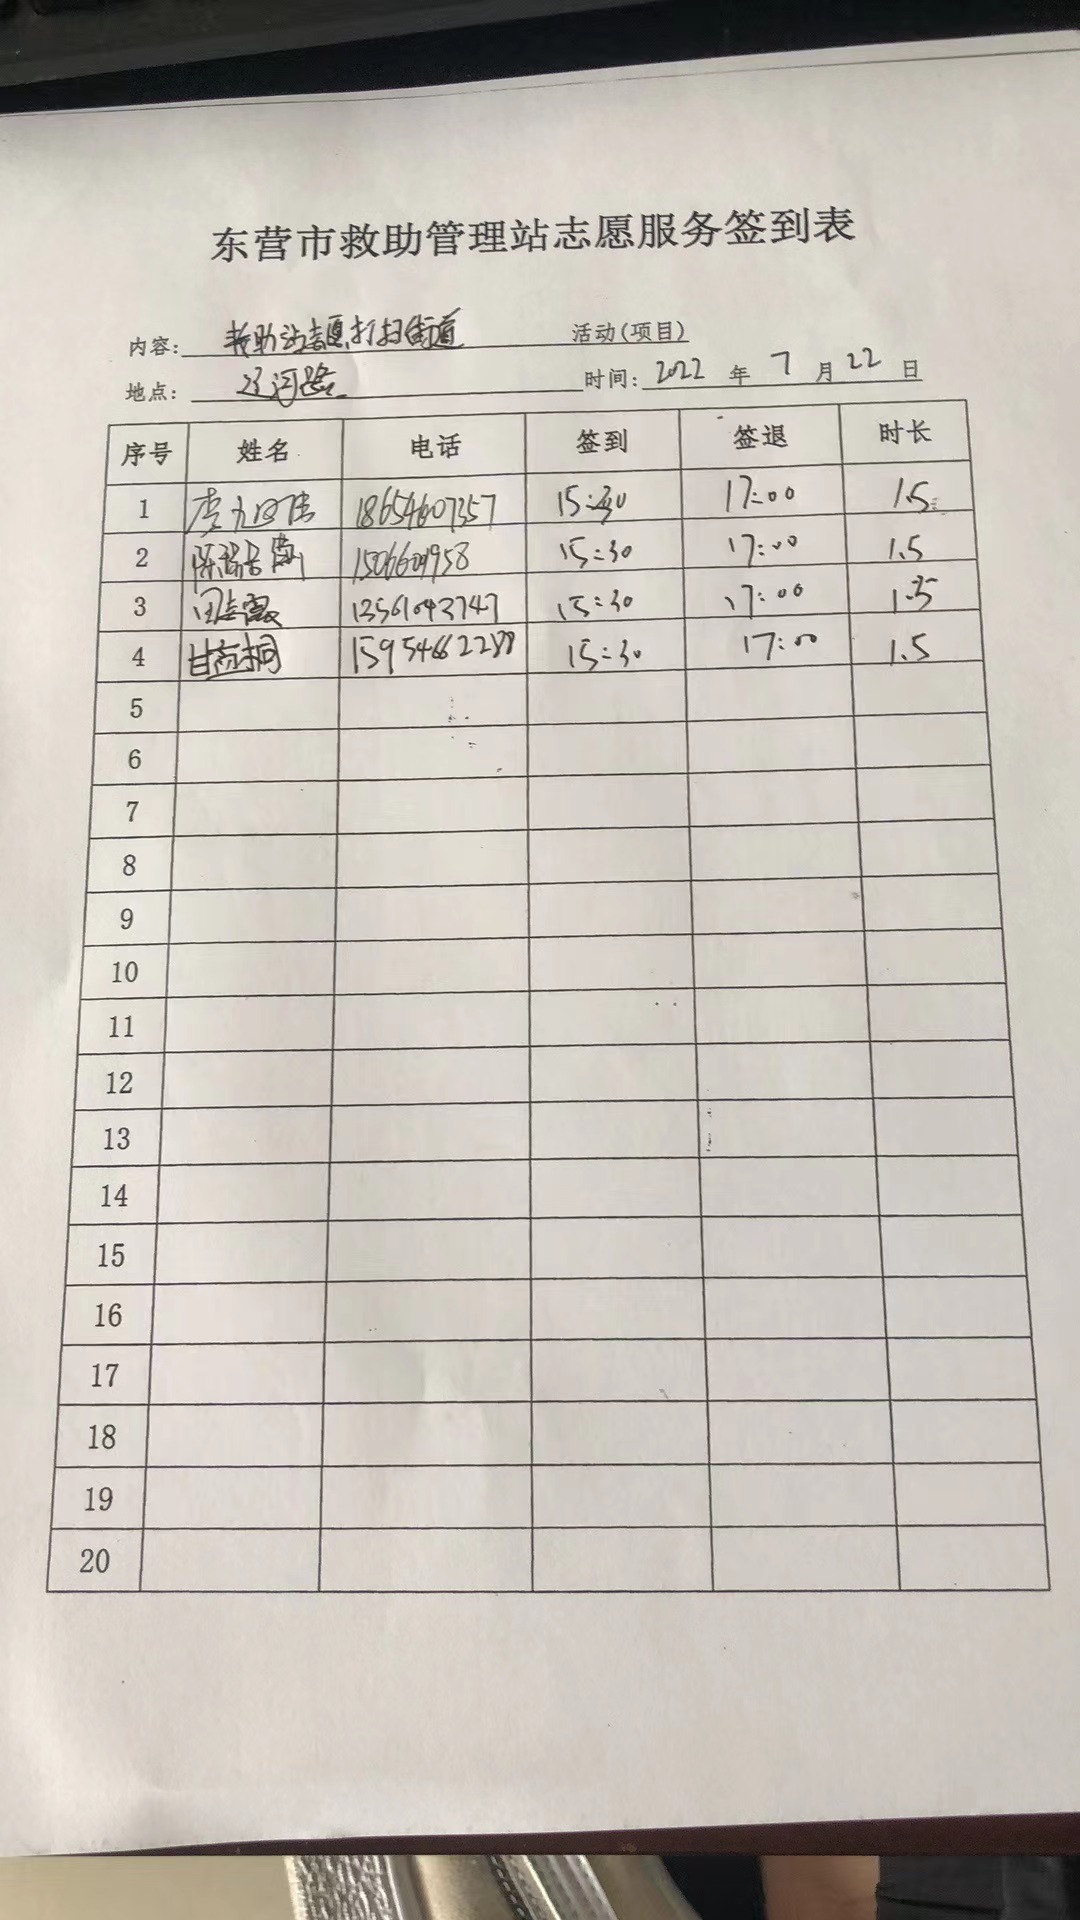 东营市救助管理站志愿服务签到表
内容: 救助站志愿打扫街道 活动(项目)
地点: 辽河路 时间: 2022 年 7 月 22 日
序号 姓名 电话 签到 签退 时长
1 18654607357 15:30 17:00 1.5
2 陈 15:30 17:00 1.5
3 13561043747 15:30 17:00 1.5
4 甘 桐 15954662288 15:30 17:00 1.5
5
6
7
8
9
10
11
12
13
14
15
16
17
18
19
20